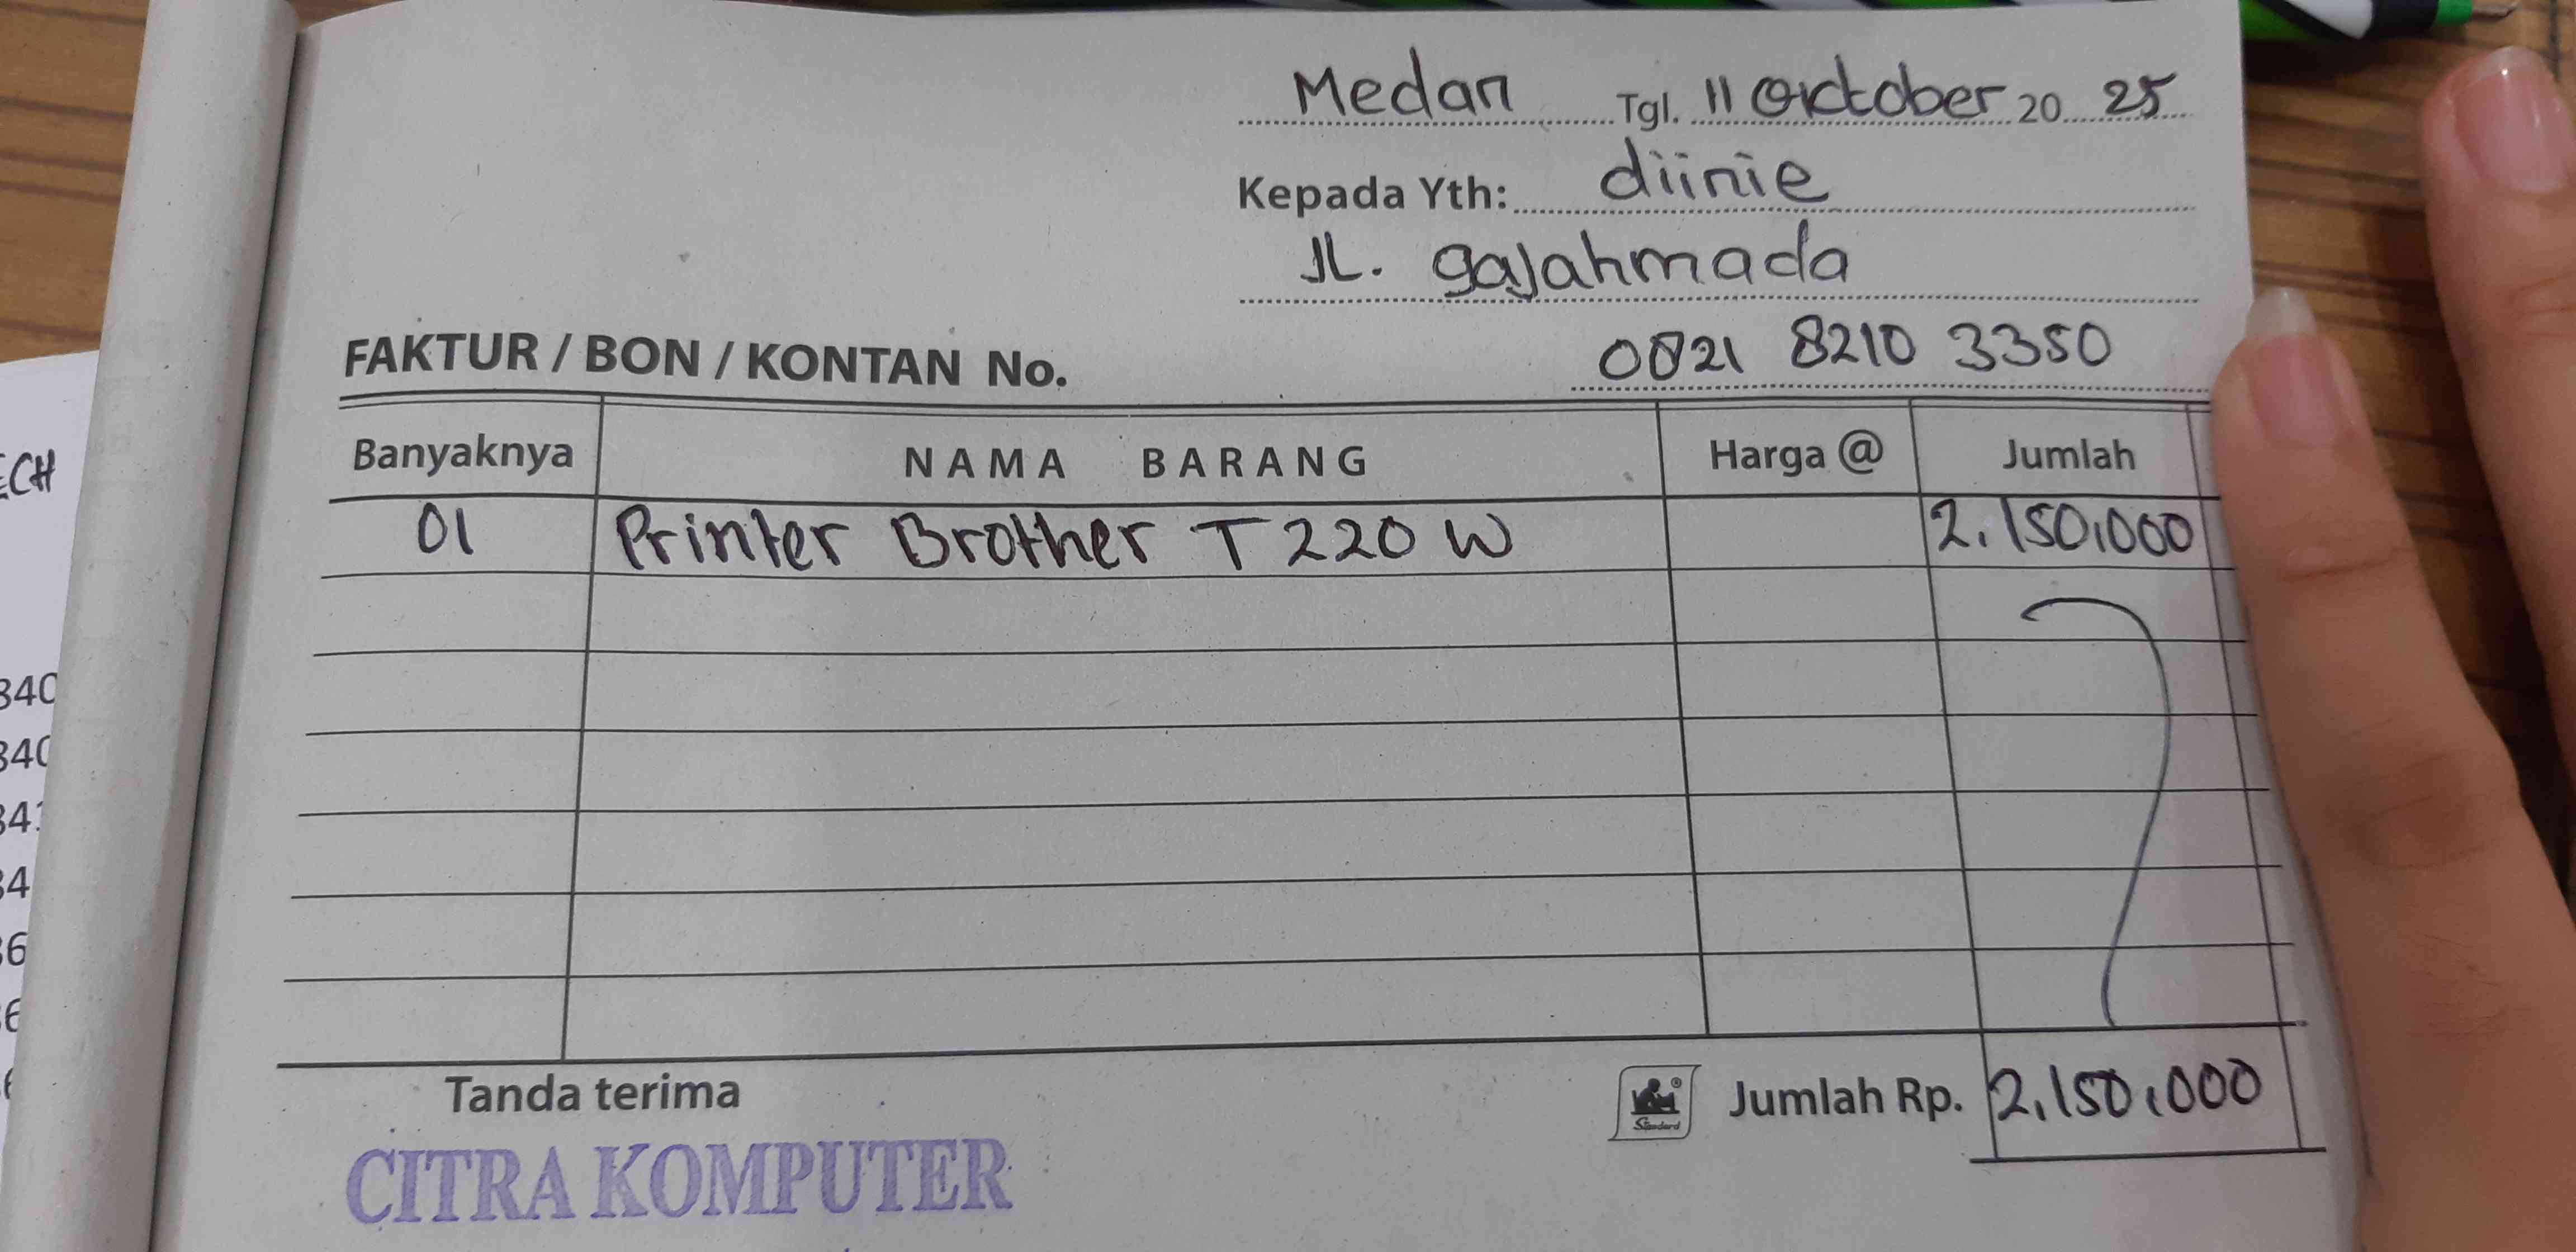 Medan Tgl. 11 Oktober 20 25
Kepada Yth: diinie
JL. gajahmada
FAKTUR / BON / KONTAN No. 0821 8210 3350
Banyaknya NAMA BARANG Harga @ Jumlah
01 Printer Brother T 220 W 2.150.000
Tanda terima Standard Jumlah Rp. 2.150.000
CITRA KOMPUTER
ECH
340
340